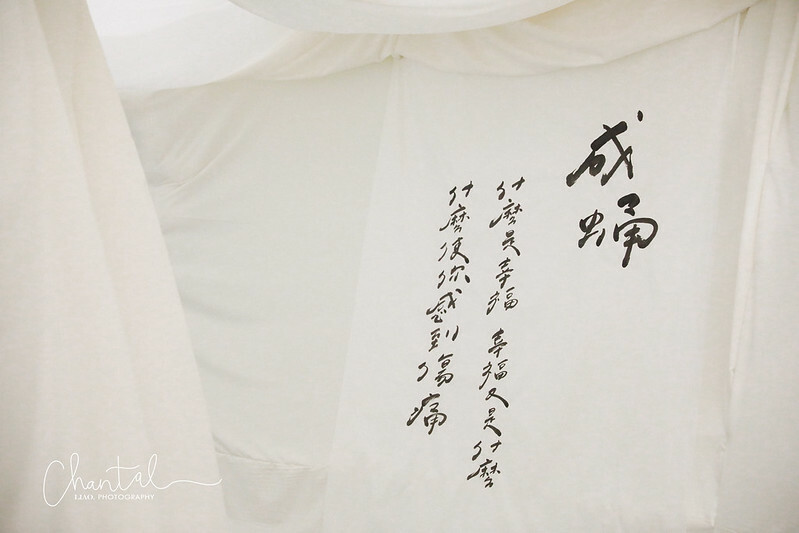 成蛹
什麼是幸福 幸福又是什麼
什麼使你感到傷痛
Chantal
LIAO. PHOTOGRAPHY